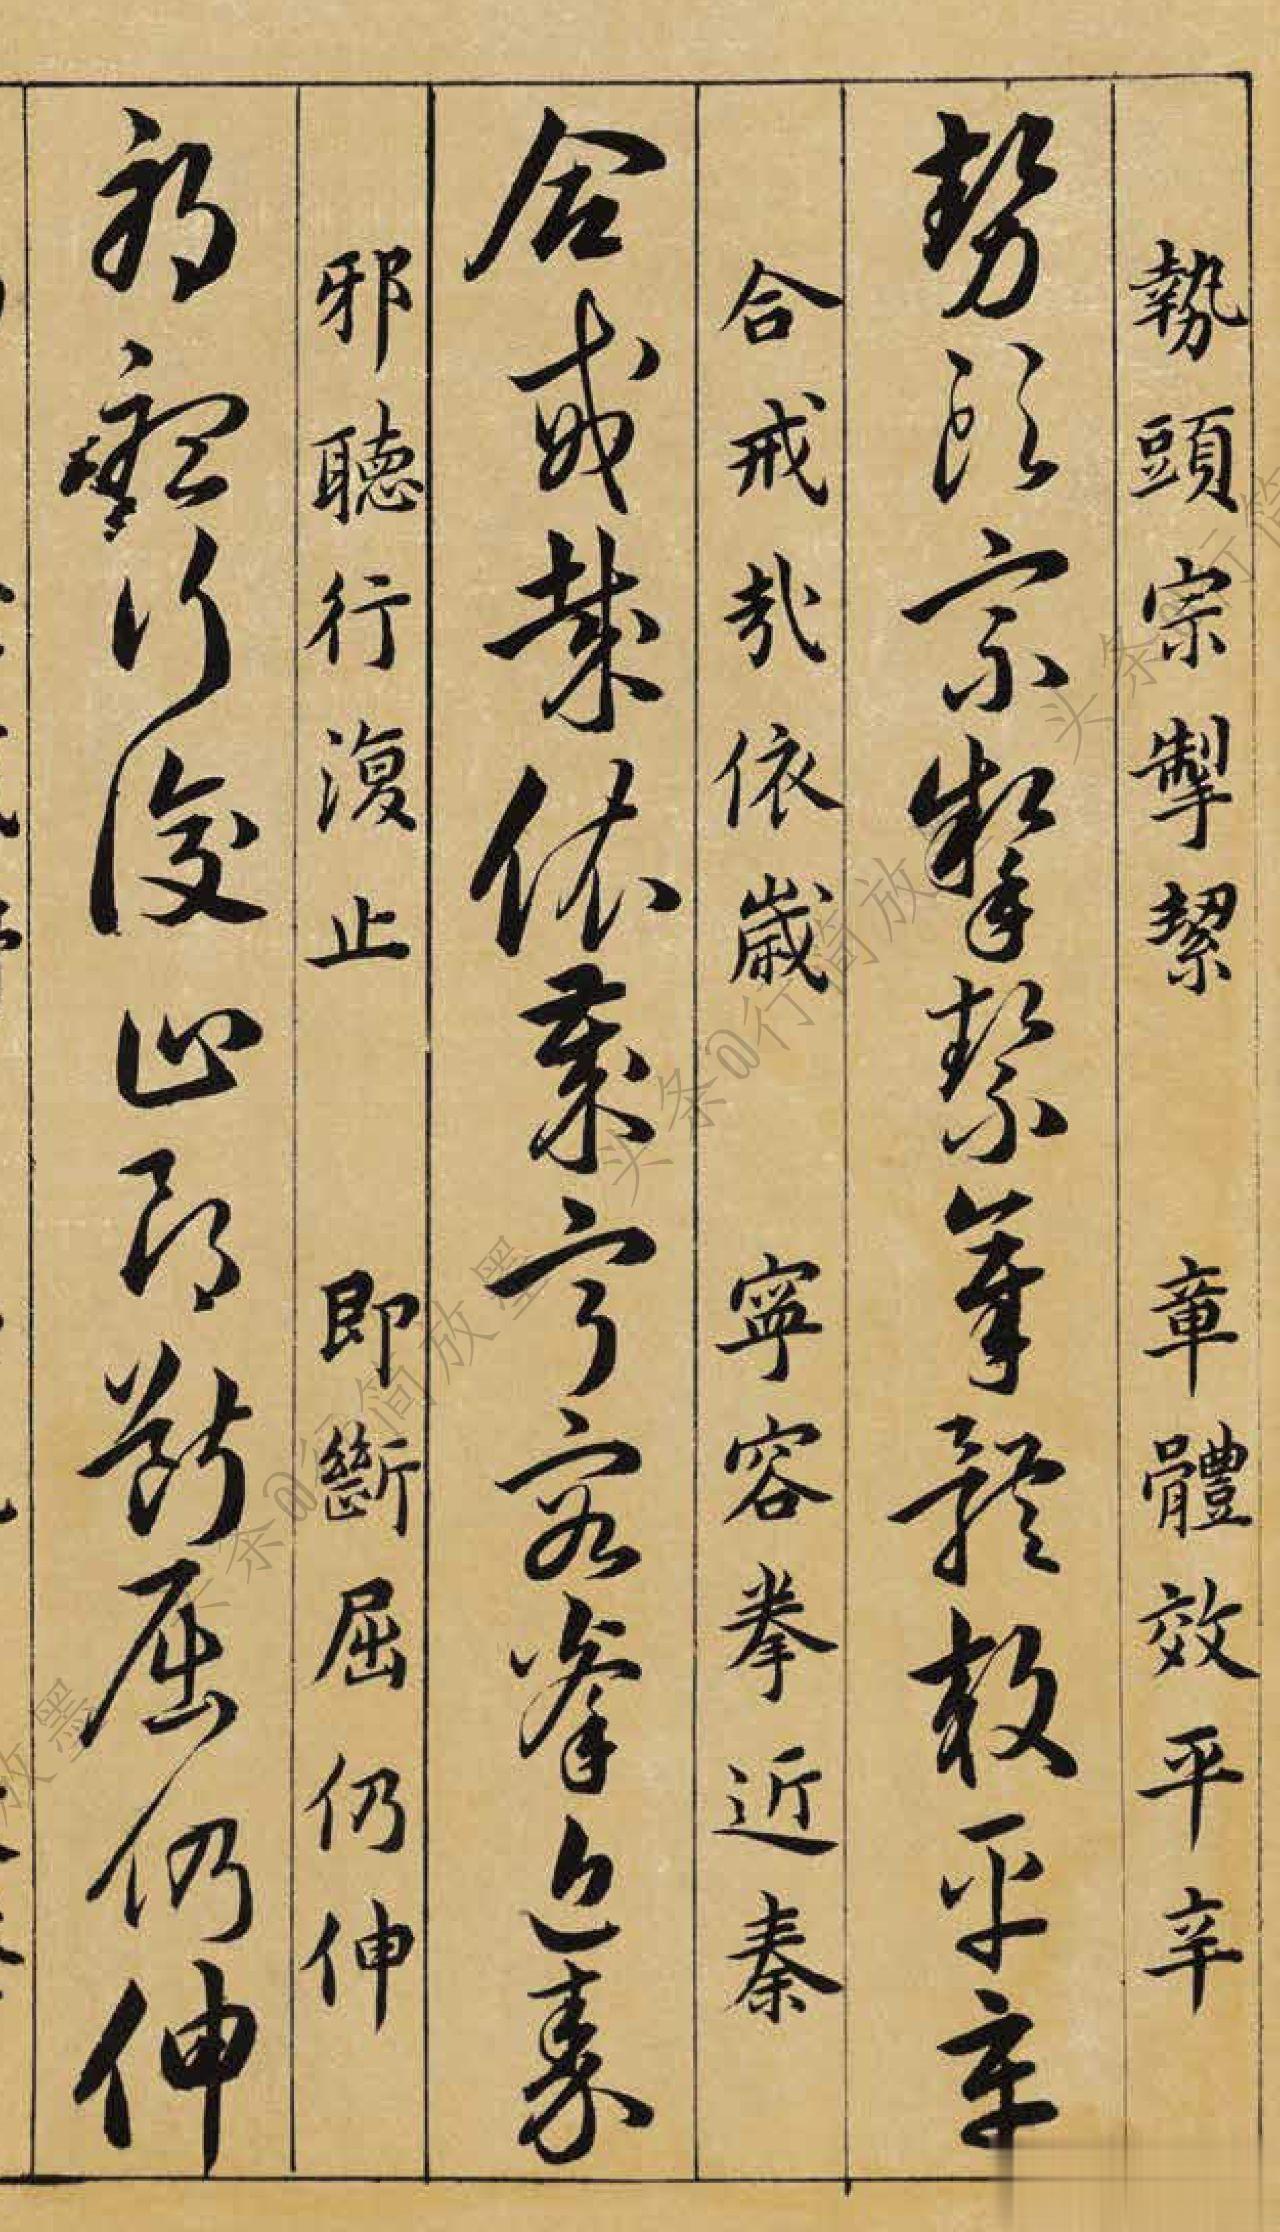 勢頭宗掣絜 章體效平辛
勢頭宗掣絜章體效平辛
合戒哉依歲 寧容拳近秦
合戒哉依歲寧容拳近秦
邪聽行復止 即斷屈仍伸
邪聽行復止即斷屈仍伸
头条@行简放墨
头条@行简放墨